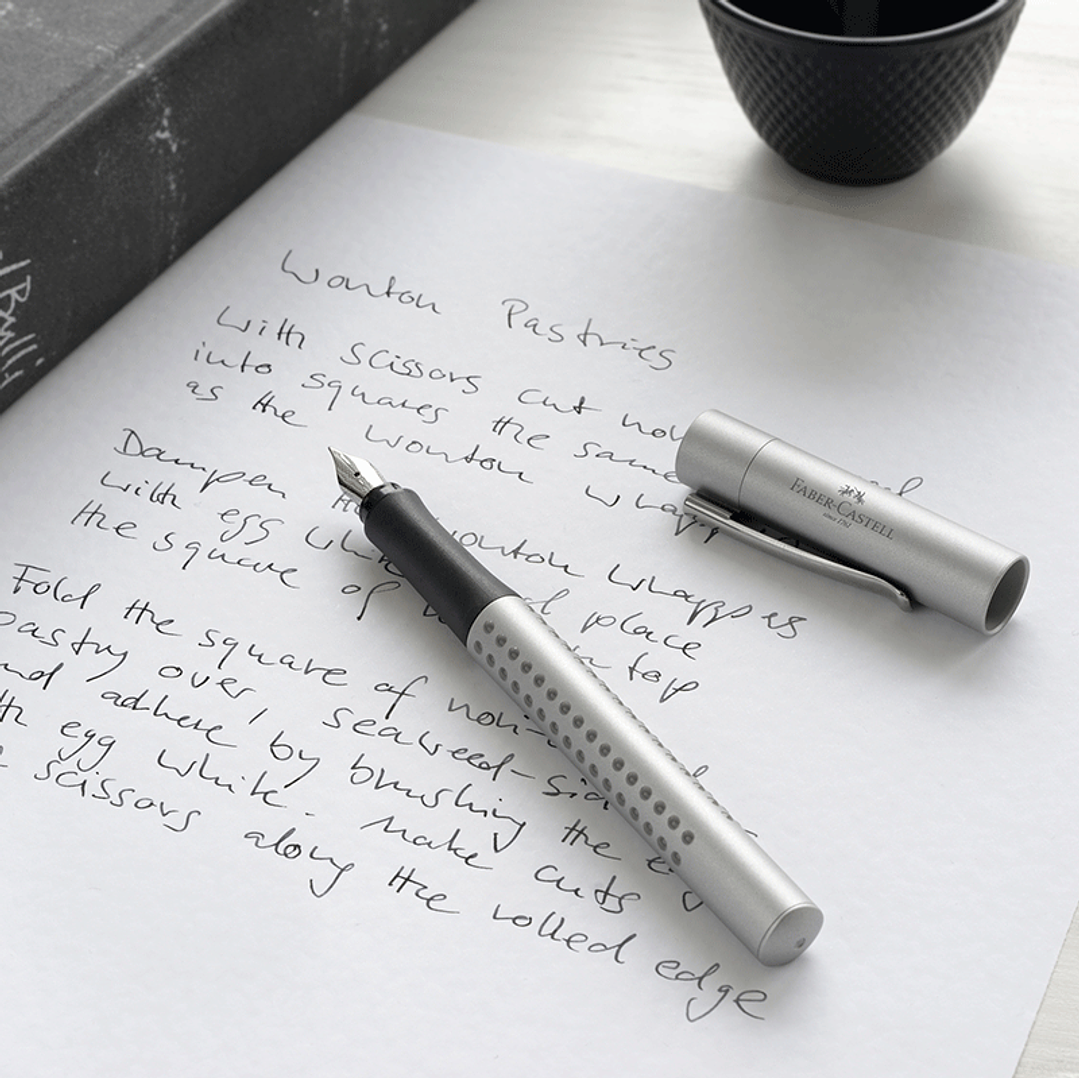 Wonton Pastries
With scissors cut
into squares the same
as the wonton
Dampen the wonton wrappers
with egg white place
the square of top
Fold the square of nori
pastry over, seaweed-side
and adhere by brushing the
egg white. Make cuts
scissors along the rolled edge
FABER-CASTELL
since 1761